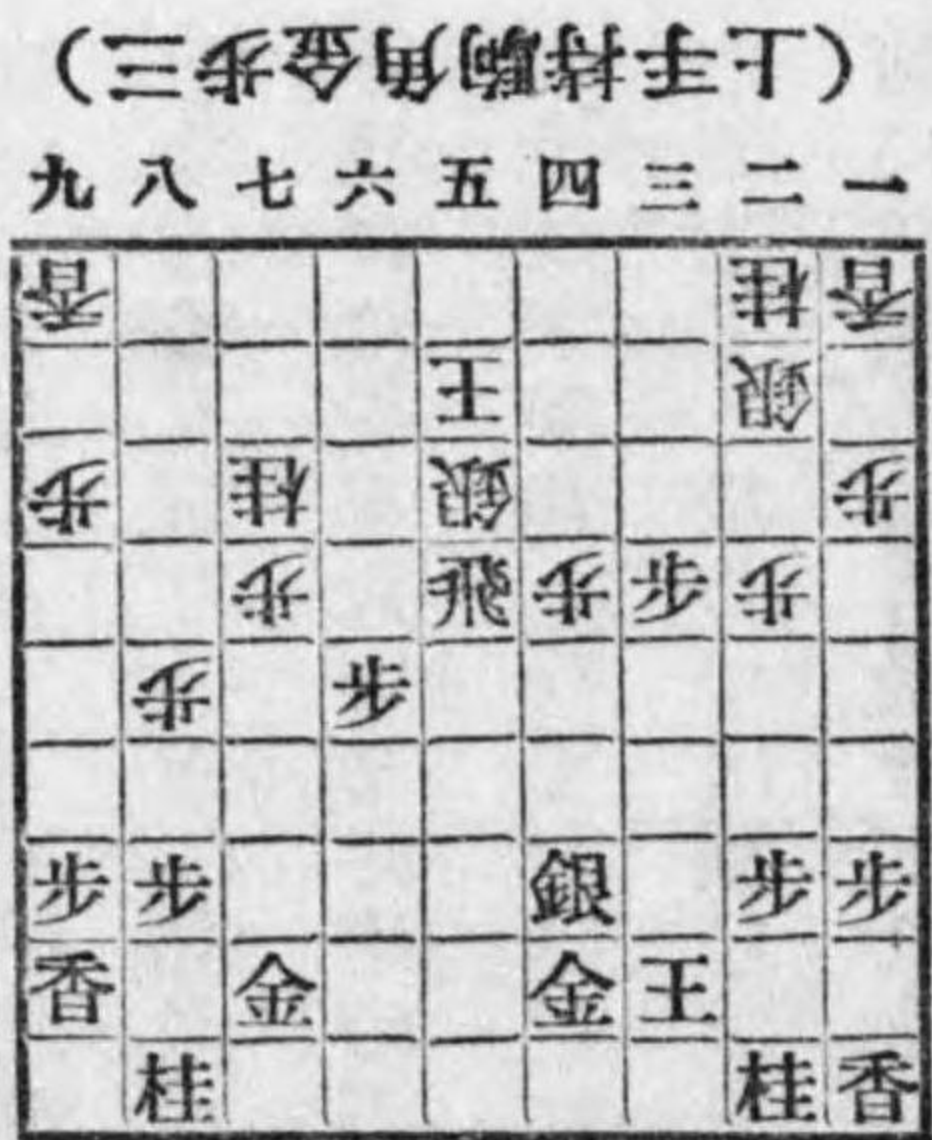 （上手持駒角金歩三）
九 八 七 六 五 四 三 二 一
香 桂 香
王 銀
歩 桂 銀 歩
歩 飛 歩 歩 歩
歩 歩
歩 歩 銀 歩 歩
香 金 金 王
桂 桂 香